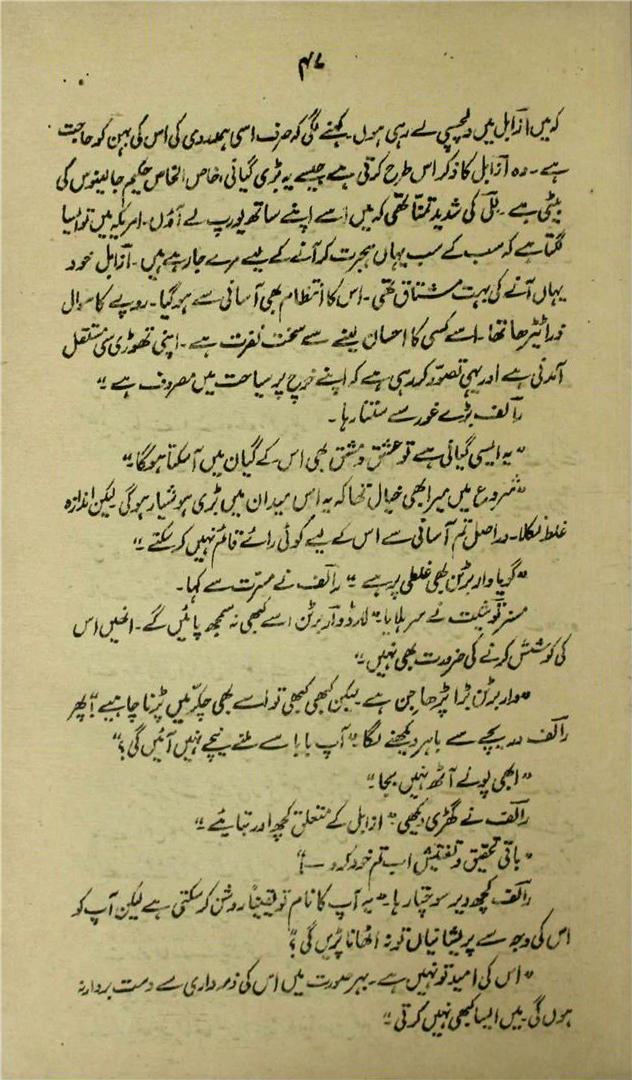 ۴۷
کہ میں ازآبل میں دلچسپی لے رہی ہوں۔ کہنے لگی کہ صرف اسی ہمدردی کی اس کی بہن کو حاجت
ہے۔ وہ آزابل کا ذکر اس طرح کرتی ہے جیسے یہ بڑی گیانی، خاص الخاص حکیم جالینوس کی
بیٹی ہے۔ للّی کی شدید تمنا تھی کہ میں اسے اپنے ساتھ یورپ لے آؤں۔ امریکہ میں تو ایسا
لگتا ہے کہ سب کے سب یہاں ہجرت کر آنے کے لیے مرے جا رہے ہیں۔ آزابل خود
یہاں آنے کی بہت مشتاق تھی۔ اس کا انتظام بھی آسانی سے ہو گیا۔ روپے کا سوال
ذرا ٹیڑھا تھا۔ اسے کسی کا احسان لینے سے سخت نفرت ہے۔ اپنی تھوڑی سی مستقل
آمدنی ہے اور یہی تصوّر کر رہی ہے کہ اپنے خرچ پر سیاحت میں مصروف ہے۔"
رآلف بڑے غور سے سنتا رہا۔
"یہ ایسی گیانی ہے تو عشق و مشق بھی اس کے گیان میں آ سکتا ہوگا۔"
"شروع میں میرا بھی خیال تھا کہ یہ اس میدان میں بڑی ہوشیار ہوگی لیکن اندازہ
غلط نکلا۔ دراصل تم آسانی سے اس کے لیے کوئی رائے قائم نہیں کر سکتے۔"
"گویا وار برٹن بھی غلطی پر ہے۔" رآلف نے مسرت سے کہا۔
مسز ٹوشیٹ نے سر ہلایا۔ "لارڈ وآر برٹن اسے کبھی نہ سمجھ پائیں گے۔ انھیں اس
کی کوشش کرنے کی ضرورت بھی نہیں۔"
"وار برٹن بڑا پڑھا جن ہے۔ لیکن کبھی کبھی تو اسے بھی چکّر میں پڑنا چاہیے!" پھر
رآلف دریچے سے باہر دیکھنے لگا۔ "آپ بابا سے ملنے نیچے نہیں آئیں گی؟"
"ابھی پونے آٹھ نہیں بجا۔"
رآلف نے گھڑی دیکھی۔ "ازابل کے متعلق کچھ اور بتایئے۔"
"باقی تحقیق و تفتیش اب تم خود کرو —!"
رآلف کچھ دیر سوچتا رہا۔ "یہ آپ کا نام تو یقیناً روشن کر سکتی ہے لیکن آپ کو
اس کی وجہ سے پریشانیاں تو نہ اٹھانا پڑیں گی؟"
"اس کی امید تو نہیں ہے۔ بہر صورت میں اس کی ذمہ داری سے دست بردار نہ
ہوں گی۔ میں ایسا کبھی نہیں کرتی۔"